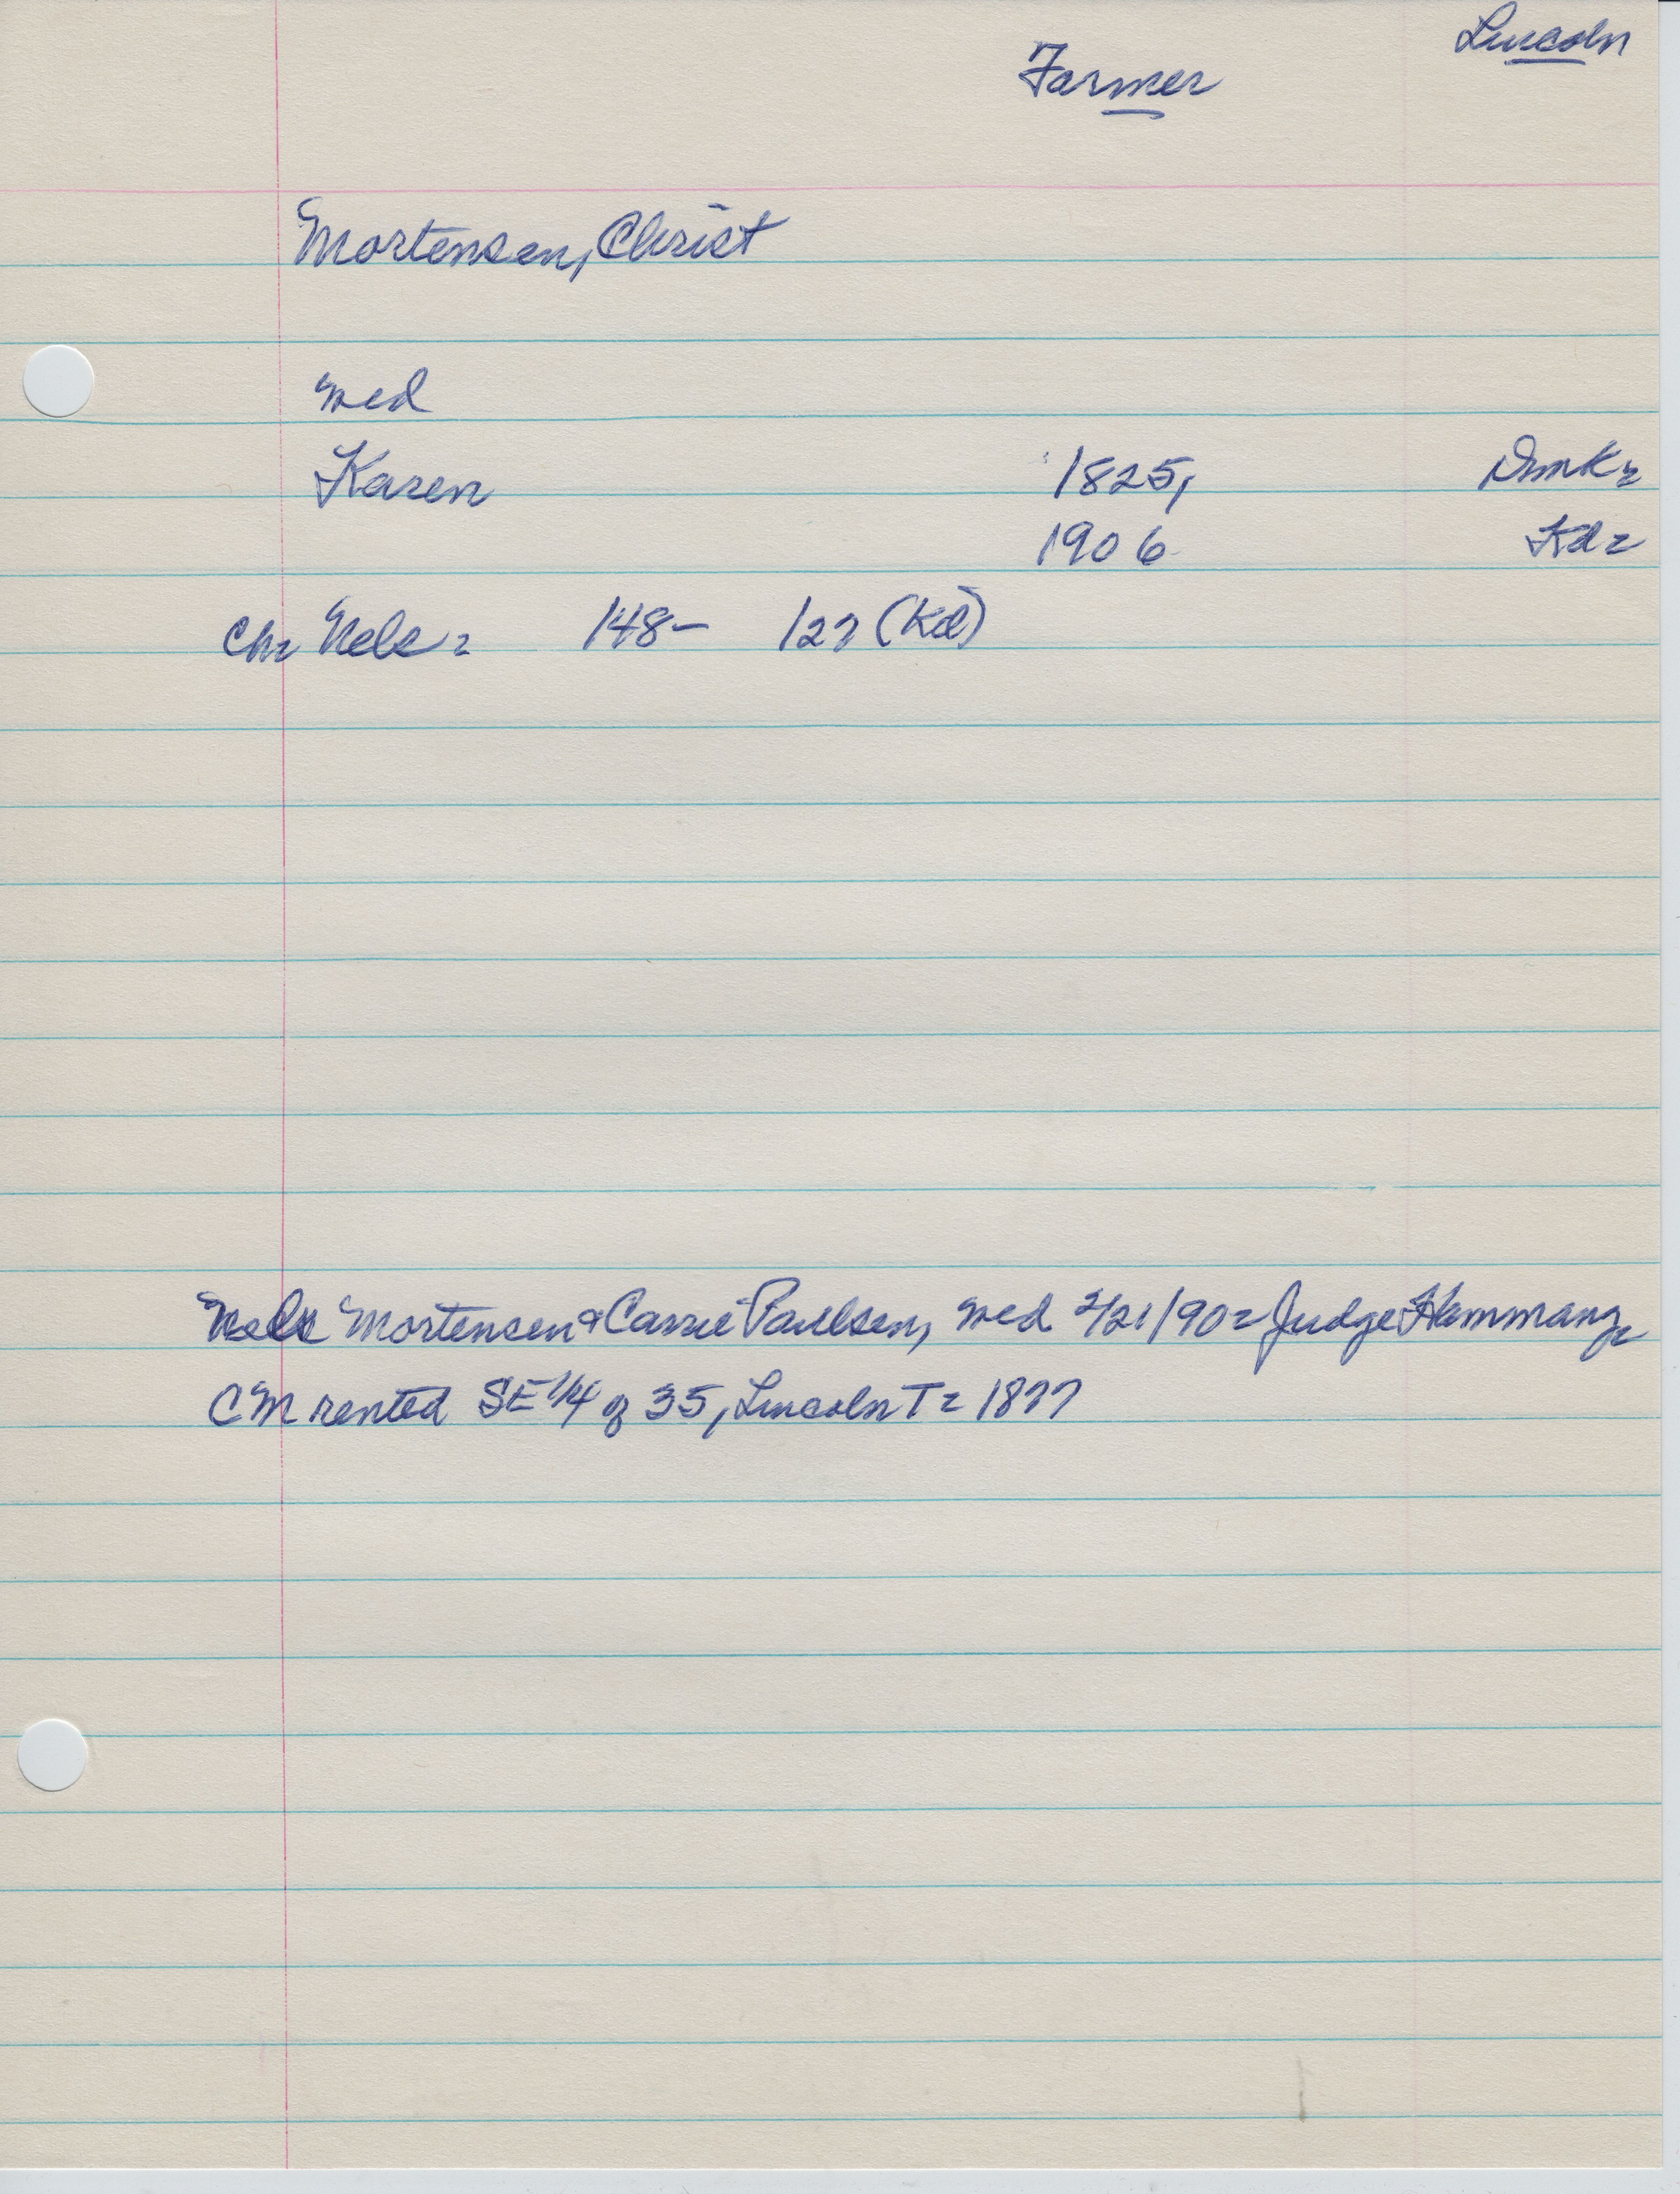 Lincoln
Farmer
Mortensen, Christ
med
Karen 1825, Dmk=
1906 Kd=
Ch= Nels= 148- 127 (Kd)
Nels Mortensen & Carrie Paulsen, med 2/21/90= Judge Hammang=
CM rented SE 1/4 of 35, Lincoln T= 1877